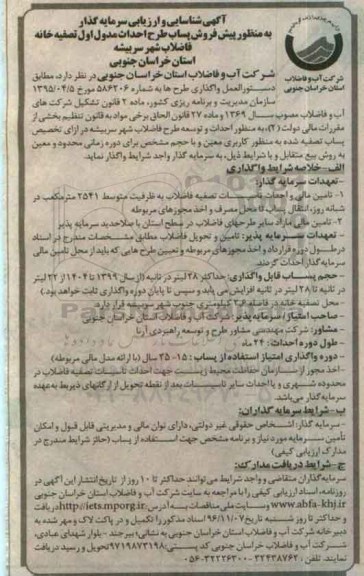 آگهی شناسایی و ارزیابی سرمایه گذار
به منظور پیش فروش پساب طرح احداث مدول اول تصفیه خانه
فاضلاب شهر سربیشه
استان خراسان جنوبی
شرکت آب و فاضلاب
استان خراسان جنوبی
شرکت آب و فاضلاب استان خراسان جنوبی در نظر دارد، مطابق
دستورالعمل واگذاری طرح ها به شماره ۵۸۶۲۰۶ مورخ ۱۳۹۵/۰۴/۵
سازمان مدیریت و برنامه ریزی کشور، ماده ۲ قانون تشکیل شرکت های
آب و فاضلاب مصوب سال ۱۳۶۹ و ماده ۲۷ قانون الحاق برخی مواد به قانون تنظیم بخشی از
مقررات مالی دولت (۲)، به منظور احداث و توسعه طرح فاضلاب شهر سربیشه در ازای تخصیص
پساب تصفیه شده به منظور کاربری معین و با حجم مشخص برای دوره زمانی محدود و معین
به روش بیع متقابل و با شرایط ذیل، به سرمایه گذار واجد شرایط واگذار نماید.
الف- خلاصه شرایط واگذاری
- تعهدات سرمایه گذار:
۱- تامین مالی و احداث تاسیسات تصفیه فاضلاب به ظرفیت متوسط ۲۵۴۱ مترمکعب در
شبانه روز، انتقال پساب تا محل مصرف و اخذ مجوزهای مربوطه
۲- تامین مالی مازاد سایر طرحهای فاضلاب در سطح استان با صلاحدید سرمایه پذیر
- تعهدات سرمایه پذیر: تامین و تحویل فاضلاب مطابق مشخصات مندرج در اسناد
در طول دوره قرارداد و اخذ مجوزهای مربوطه و تعیین طرح هایی که باید از محل تامین مالی
سرمایه گذار احداث گردند.
- حجم پساب قابل واگذاری: حداکثر ۲۸ لیتر در ثانیه (از سال ۱۳۹۹ تا ۱۴۰۴ از ۲۲ لیتر
در ثانیه تا ۲۸ لیتر در ثانیه افزایش می یابد و سپس تا پایان دوره واگذاری ثابت خواهد بود.)
- محل تصفیه خانه در فاصله کیلومتری جنوب شهر سربیشه قرار دارد.
- صاحب امتیاز/ سرمایه پذیر: شرکت آب و فاضلاب استان خراسان جنوبی
- مشاور: شرکت مهندسی مشاور طرح و توسعه راهبردی آرنا
- طول دوره احداث: ۲۴ ماه
- دوره واگذاری امتیاز استفاده از پساب: ۱۵- ۲۵ سال (با ارائه مدل مالی مربوطه)
- اخذ مجوز از سازمان حفاظت محیط زیست جهت احداث تاسیسات تصفیه فاضلاب در
محدوده شهری و یا احداث سایر تاسیسات بعد از نقطه تحویل از ارگانهای ذیربط به عهده
سرمایه گذار می باشد.
ب- شرایط سرمایه گذاران:
- سرمایه گذار: اشخاص حقوقی غیر دولتی، دارای توان مالی و مدیریتی قابل قبول و امکان
تأمین سرمایه مورد نیاز و برنامه مشخص جهت استفاده از پساب (حائز شرایط مندرج در
مدارک ارزیابی کیفی)
ج- شرایط دریافت مدارک:
سرمایه گذاران متقاضی و واجد شرایط می توانند حداکثر تا ۱۰ روز از تاریخ انتشار این آگهی در
روزنامه، اسناد ارزیابی کیفی را با مراجعه به سایت شرکت آب و فاضلاب استان خراسان جنوبی
www.abfa-khj.ir و سایت ملی مناقصات به آدرس http://iets.mporg.ir دریافت
و حداکثر تا روز شنبه تاریخ ۹۶/۱۱/۰۷ اسناد مذکور را تکمیل و در پاکت لاک و مهر شده به
دبیرخانه شرکت آب و فاضلاب استان خراسان جنوبی به نشانی: بیرجند - بلوار شهدای عبادی،
شرکت آب و فاضلاب خراسان جنوبی کد پستی: ۹۷۱۹۸۷۳۱۹۸ تحویل و رسید دریافت
نمایند. تلفن: ۳۲۴۳۸۷۶۲ - ۰۵۶-۳۲۲۲۶۳۰۰